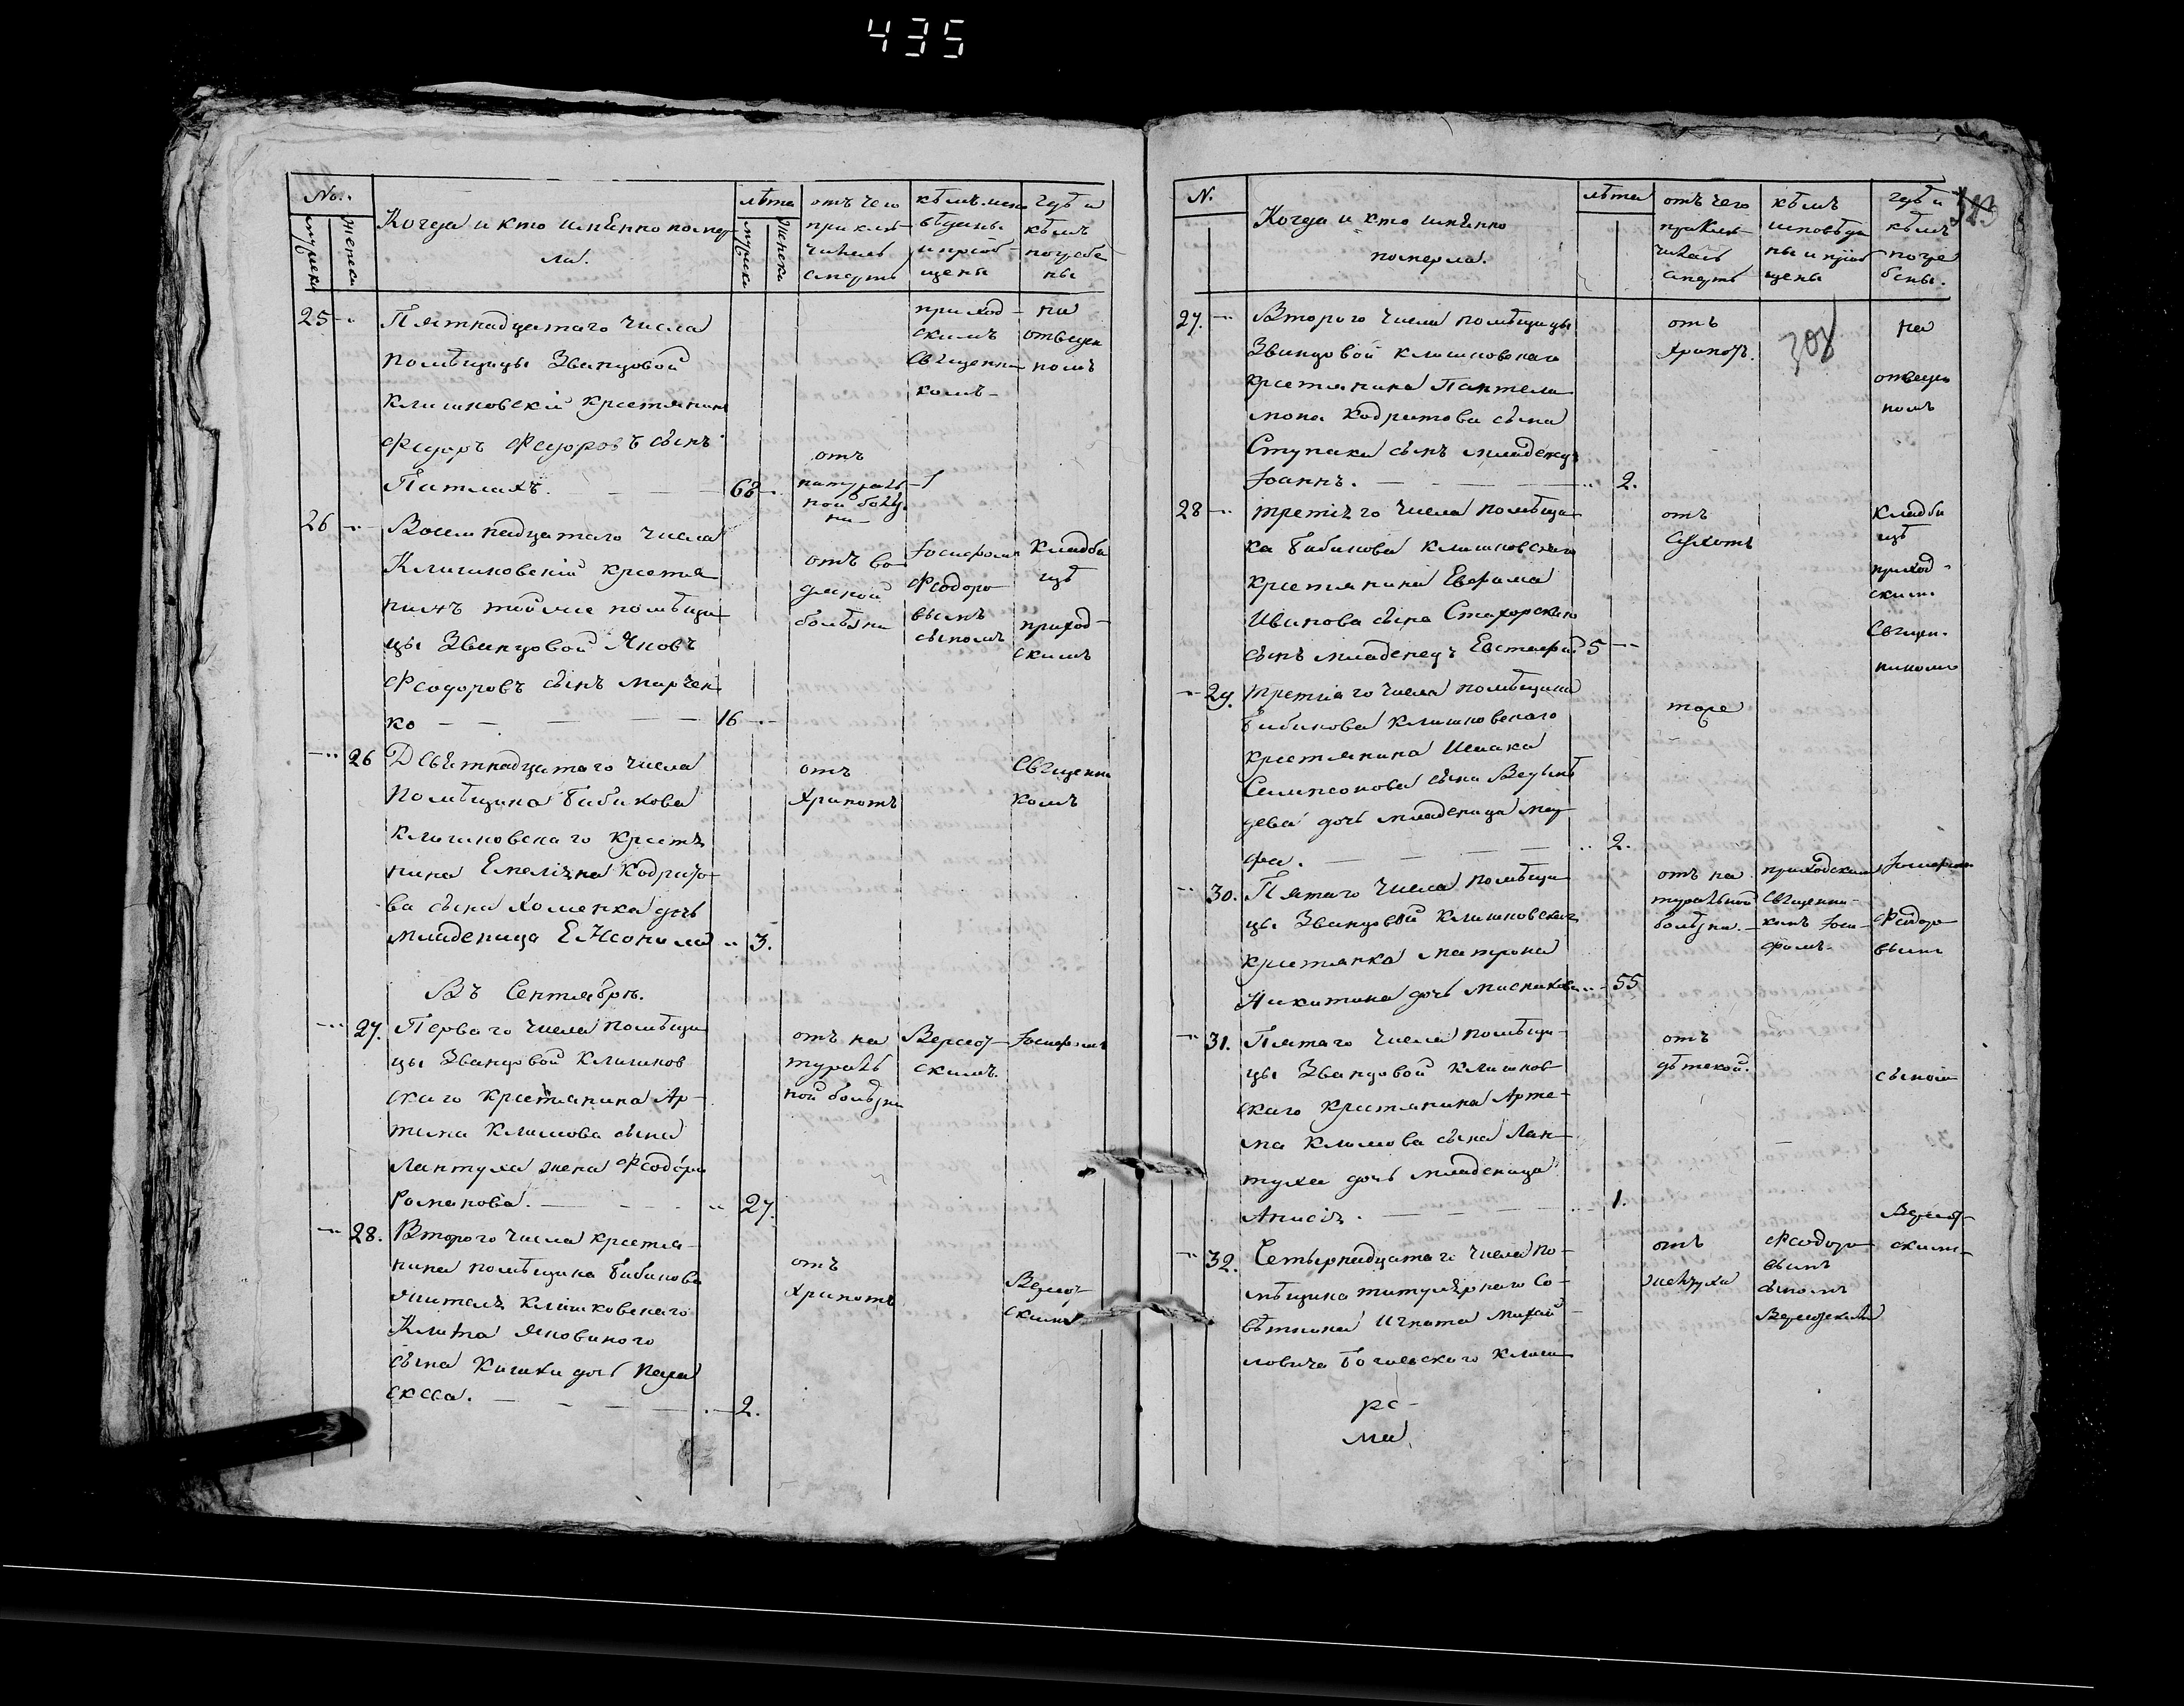 435
No.
мужска
женска
Когда и кто имянно помер
ла.
лѣта
мужска
женска
отъ чего
приклю
чилась
смерть
кѣмъ испо
вѣданы
и пріоб
щены
гдѣ и
кѣмъ
погребе
ны
25
Пятнадцатаго числа
помѣщицы Званцовой
клишковскій крестянинъ
Федоръ Федоровъ сынъ
68
отъ
натураль
ной болѣз
ни
приход
скимъ
Священни
комъ
на
отведен
номъ
26
Восемнадцатаго числа
Клишковскій крестя
нинъ тойже помѣщи
цы Званцовой Яковъ
Феодоровъ сынъ Марчен
ко
16
отъ во
дяной
болѣзни
Іосифомъ
Феодоро
вымъ
сыномъ
кладби
щѣ
приход
скимъ
26
Девятнадцатаго числа
Помѣщика Бибикова
клишковскаго крестя
нина Емеліяна Кодрато
ва сына Хоменка дочь
младеница
3.
отъ
хрипоты
Священни
комъ
Въ Сентябрѣ.
27.
Перваго числа помѣщи
цы Званцовой Клишков
скаго крестянина Ар
тема Климова сына
Лантуха жена Феодора
Романова.
27.
отъ на
тураль
ной болѣзни
скимъ.
Іосифомъ
28.
Второго числа крестя
нина помѣщика Бибикова
жителя клишковскаго
сына дочь Пара
скева.
2.
отъ
хрипоты
скимъ
N.
Когда и кто имянно
померла.
лѣта
отъ чего
приклю
чилась
смерть
кѣмъ
исповѣда
ны и пріоб
щены
гдѣ и
кѣмъ
погре
бены.
308
27.
Второго числа помѣщицы
Званцовой клишковскаго
крестянина Пантели
мона Кодратова сына
Ступака сынъ младенецъ
Іоаннъ.
2.
отъ
хрипоты
на
отведен
номъ
28
третіяго числа помѣщи
ка Бибикова клишковскаго
крестянина Ефрема
Иванова сына
сынъ младенецъ Евстафій
5
отъ
сухоты
кладби
щѣ
приход
скимъ
Священ
никомъ
29.
третіяго числа помѣщика
Бибикова клишковскаго
крестянина Исака
Самсонова сына
дочь младеница
2.
тоже
30.
Пятаго числа помѣщи
цы Званцовой клишковская
крестянка Матрона
Никитина дочь
55
отъ на
туральной
болѣзни.
приходскимъ
Священни
комъ Іоси
фомъ
Іосифомъ
Феодоро
вымъ
31.
Пятаго числа помѣщи
цы Званцовой клишков
скаго крестянина Арте
ма Климова сына Лан
туха дочь младеница
Анисія.
1.
отъ
дѣтской.
сыномъ
32.
Четырнадцатаго числа по
мѣщика титулярнаго Со
вѣтника Игната Михай
ловича клиш
отъ
Феодоро
вымъ
сыномъ
скимъ